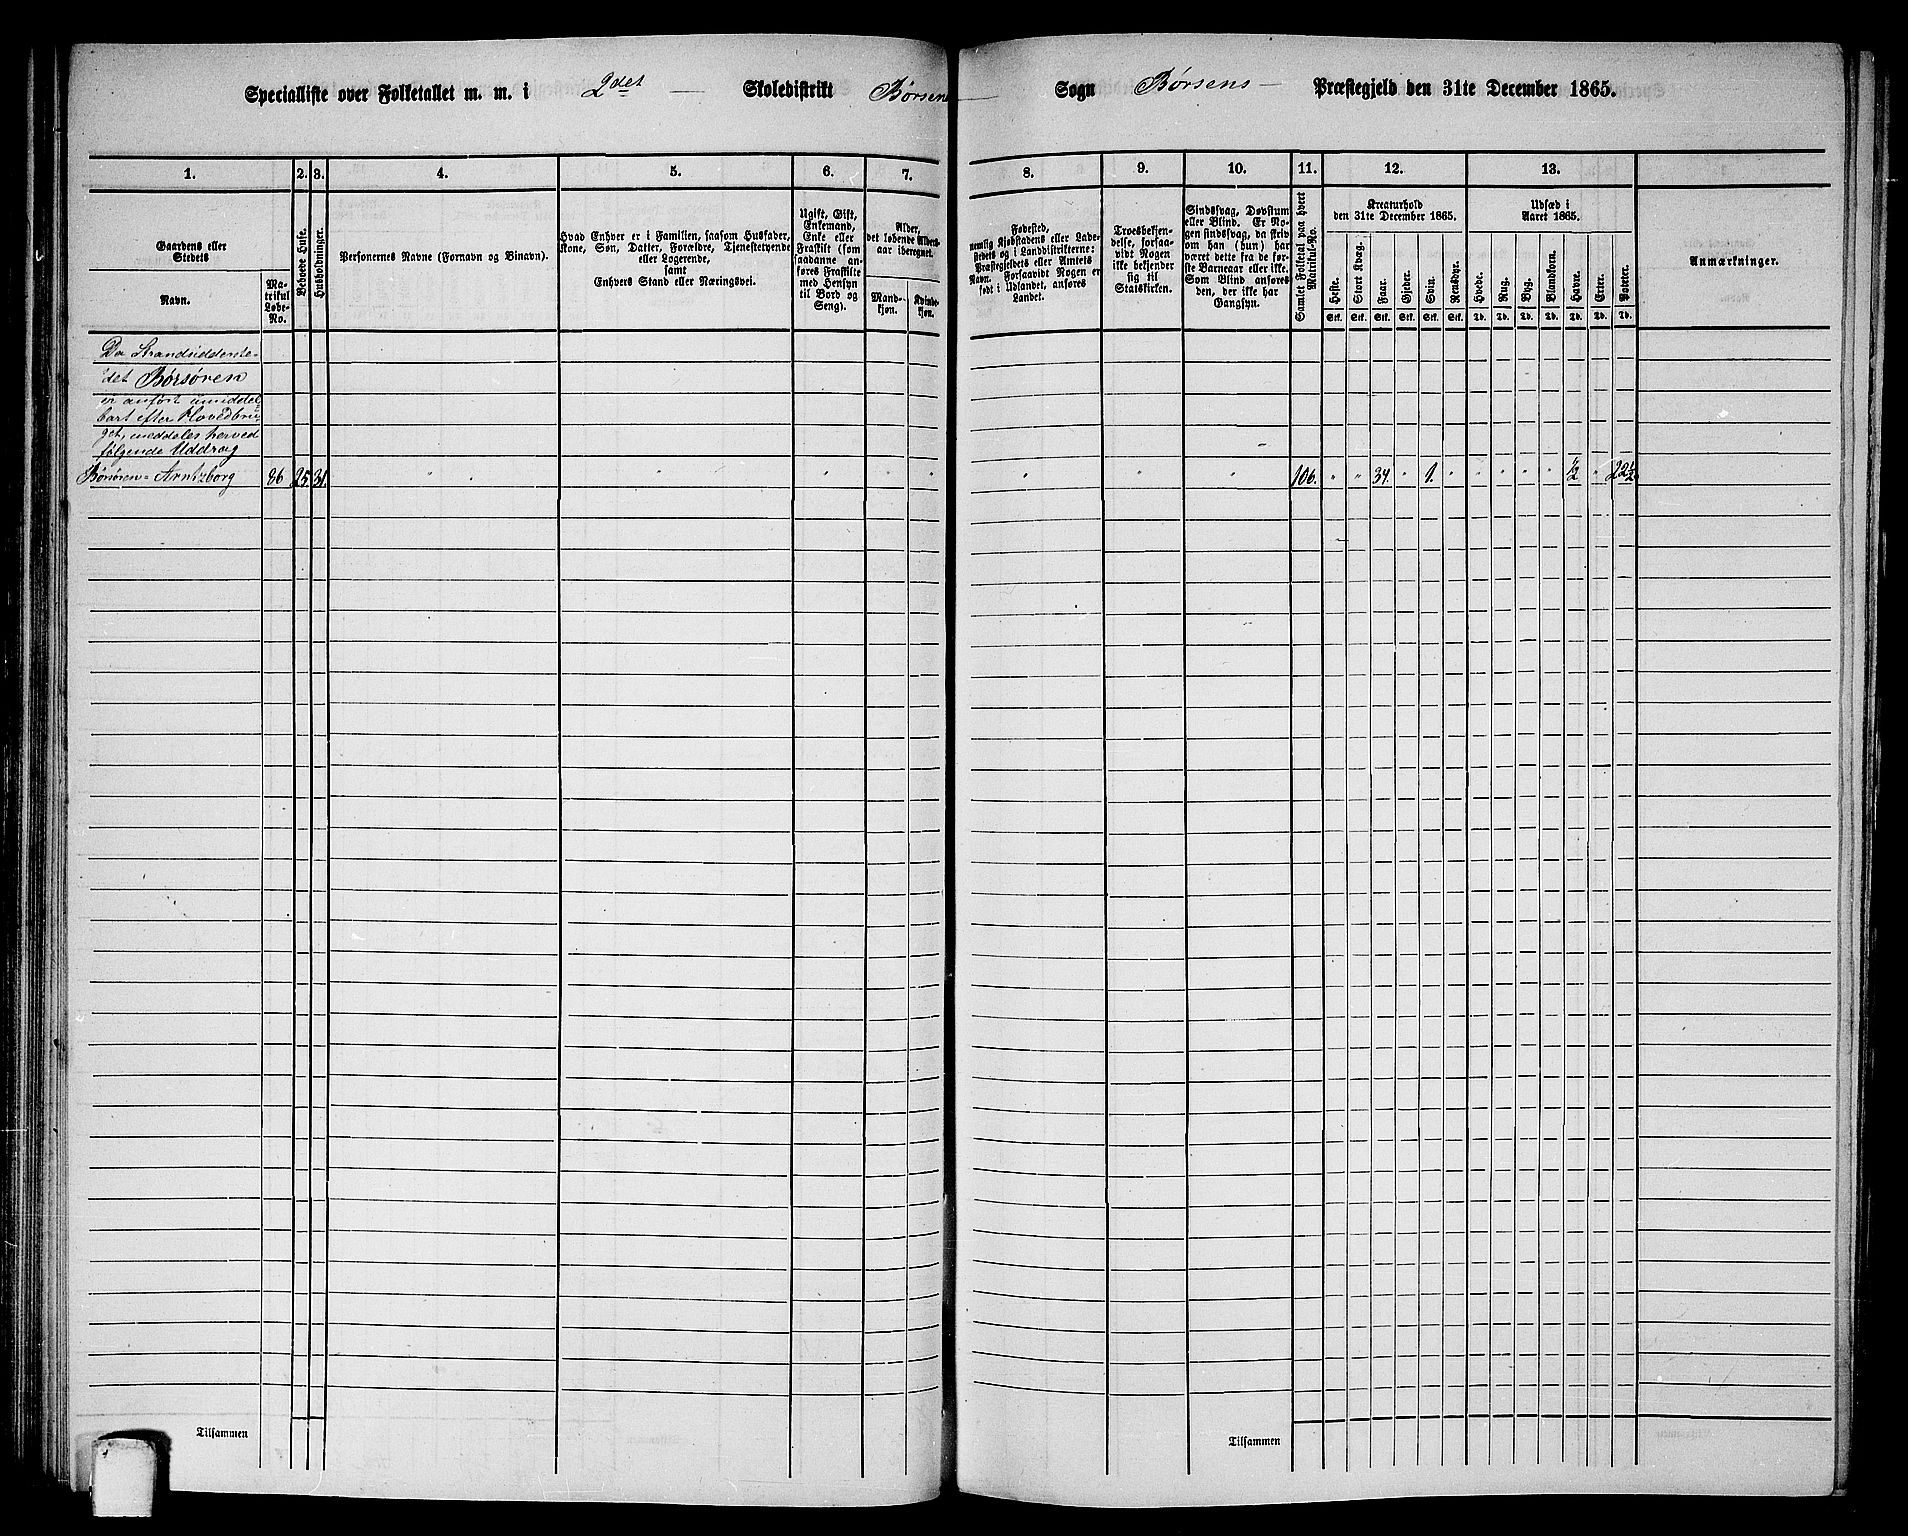 Specialliste over Folketallet m. m. i 2det Skoledistrikt Børsens Sogn Børsens Præstegjeld den 31te December 1865.
1. 2. 3. 4. 5. 6. 7. 8. 9. 10. 11. 12. 13.
Gaardens eller
Stedets
Navn.
Ma-
trikul
Løbe-
No.
Beboede Huse.
Husholdninger.
Personernes Navne (Fornavn og Binavn).
Hvad Enhver er i Familien, saasom Husfader,
Kone, Søn, Datter, Forældre, Tjenestetyende
eller Logerende,
samt
Enhvers Stand eller Næringsvei.
Ugift, Gift,
Enkemand,
Enke eller
Fraskilt (som
saadanne an-
føres Fraskilte
med Hensyn
til Bord og
Seng).
Alder,
det løbende Alders-
aar iberegnet.
Mand-
kjøn.
Kvinde-
kjøn.
Fødested,
nemlig Kjøbstadens eller Lade-
stedets og i Landdistrikterne:
Præstegjeldets eller Amtets
Navn. Forsaavidt Nogen er
født i Udlandet, anføres
Landet.
Troesbekjen-
delse, forsaa-
vidt Nogen
ikke bekjender
sig til
Statskirken.
Sindssvag, Døvstum
eller Blind. Er No-
gen sindssvag, da skriv
om han (hun) har
været dette fra de før-
ste Barneaar eller ikke.
Som Blind anføres
den, der ikke har
Gangsyn.
Samlet Folketal paa hvert
Matrikul-No.
Kreaturhold
den 31te December 1865.
Heste. Stort Kvæg. Faar. Gjeder. Svin. Rensdyr.
Stk. Stk. Stk. Stk. Stk. Stk.
Udsæd i
Aaret 1865.
Hvede. Rug. Byg. Blandkorn. Havre. Erter. Poteter.
Td. Td. Td. Td. Td. Td. Td.
Anmærkninger.
Da Strandsiddeste-
det Børsøren
er anført umiddel
bart efter Hovedbru
get, meddeles herved
følgende Uddrag
Børsøren-Arntzborg 86 25. 31. " " " " " " " " 106. " " 34. " 1. " " " " " 1/2 " 22 1/2
Tilsammen Tilsammen